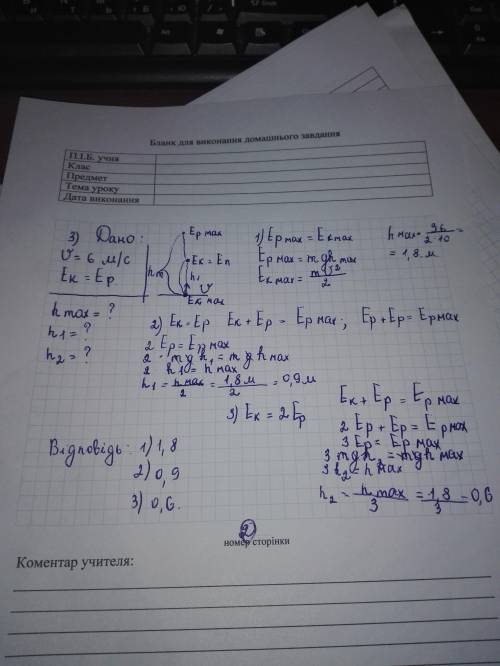 Бланк для виконання домашнього завдання
П.І.Б. учня
Клас
Предмет
Тема уроку
Дата виконання
3) Дано:
υ = 6 м/с
Eк = Ep
hmax = ?
h1 = ?
h2 = ?
Ep max
hm
Eк = Eп
h1
υ
Eк max
1) Ep max = Eк max
Ep max = mghmax
Eк max = mυ²/2
hmax = 36/2·10 =
= 1,8 м
2) Eк = Ep Eк + Ep = Ep max; Ep + Ep = Ep max
2 Ep = Ep max
2 · mgh1 = mghmax
2 h1 = hmax
h1 = hmax/2 = 1,8 м/2 = 0,9 м
3) Eк = 2Ep
Eк + Ep = Ep max
2Ep + Ep = Ep max
3Ep = Ep max
3mgh2 = mghmax
3h2 = hmax
h2 = hmax/3 = 1,8/3 = 0,6
Відповідь: 1) 1,8
2) 0,9
3) 0,6.
2
номер сторінки
Коментар учителя: